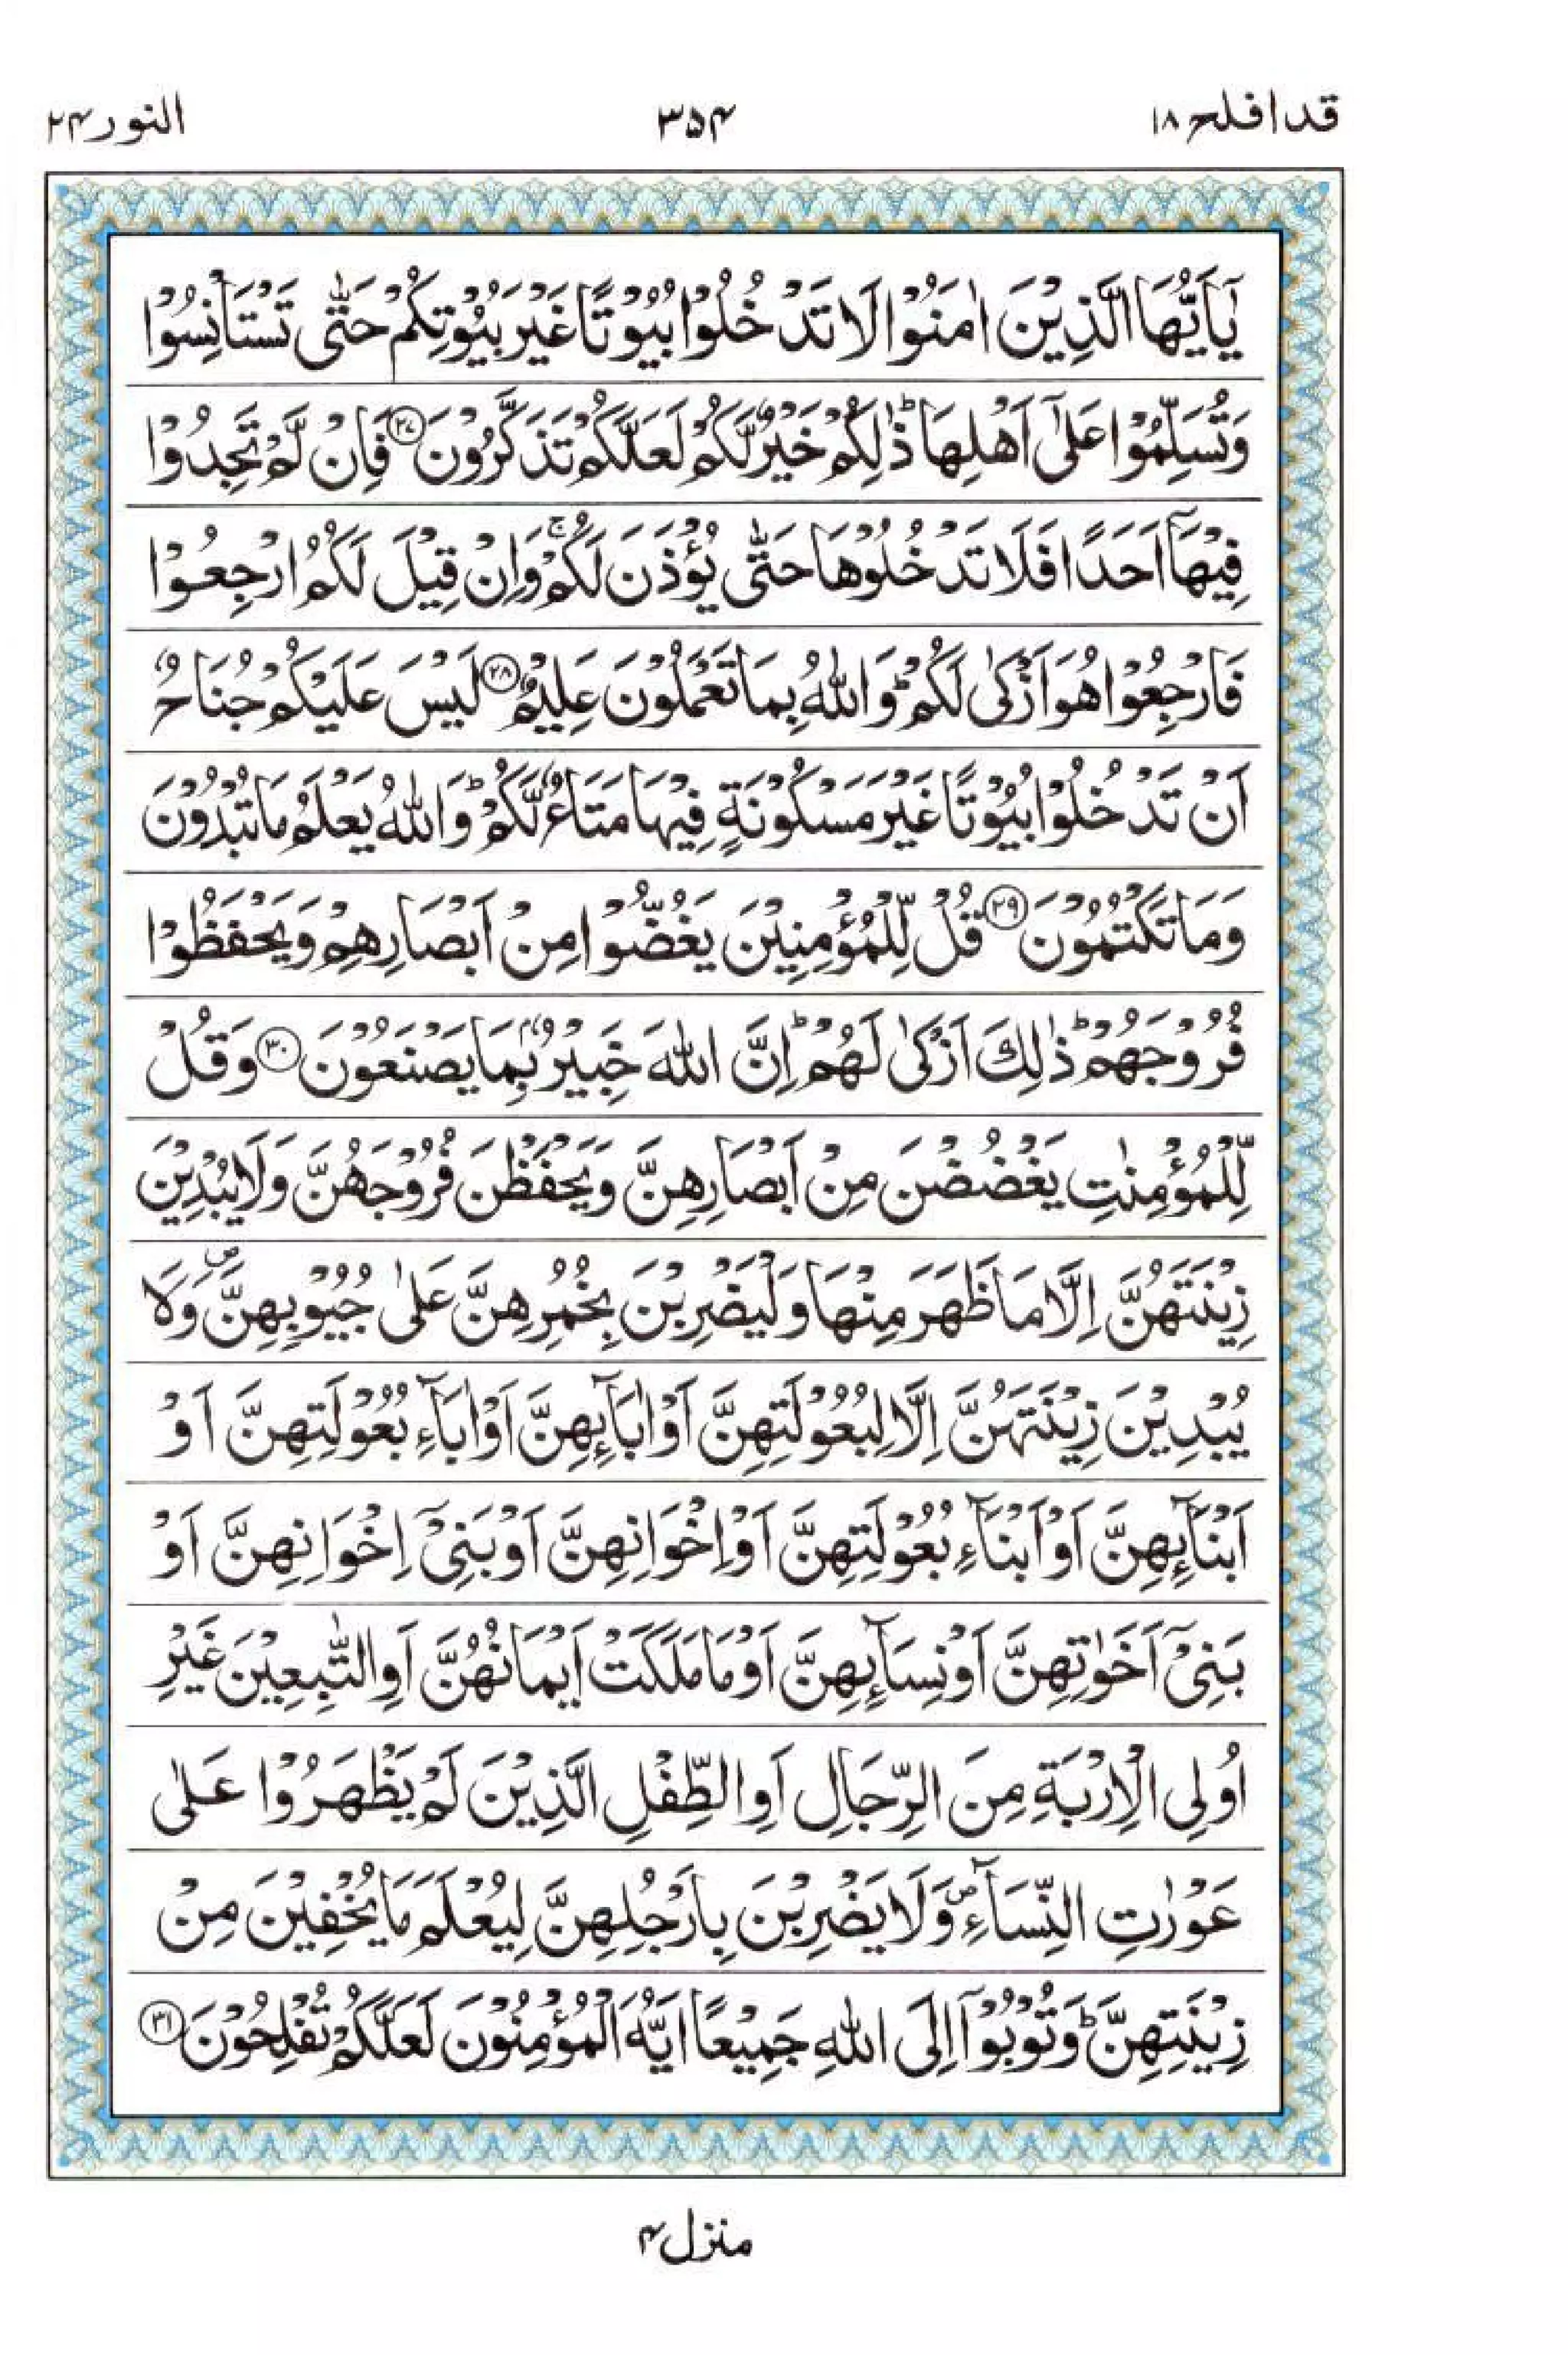 قد افلح ۱۸
۳۵۴
النور ۲۴
يٰٓاَيُّهَا الَّذِيْنَ اٰمَنُوْا لَا تَدْخُلُوْا بُيُوْتًا غَيْرَ بُيُوْتِكُمْ حَتّٰى تَسْتَاْنِسُوْا
وَتُسَلِّمُوْا عَلٰٓى اَهْلِهَا ؕ ذٰلِكُمْ خَيْرٌ لَّكُمْ لَعَلَّكُمْ تَذَكَّرُوْنَ ۲۷ فَاِنْ لَّمْ تَجِدُوْا
فِيْهَآ اَحَدًا فَلَا تَدْخُلُوْهَا حَتّٰى يُؤْذَنَ لَكُمْ ۚ وَاِنْ قِيْلَ لَكُمُ ارْجِعُوْا
فَارْجِعُوْا هُوَ اَزْكٰى لَكُمْ ؕ وَاللّٰهُ بِمَا تَعْمَلُوْنَ عَلِيْمٌ ۲۸ لَيْسَ عَلَيْكُمْ جُنَاحٌ
اَنْ تَدْخُلُوْا بُيُوْتًا غَيْرَ مَسْكُوْنَةٍ فِيْهَا مَتَاعٌ لَّكُمْ ؕ وَاللّٰهُ يَعْلَمُ مَا تُبْدُوْنَ
وَمَا تَكْتُمُوْنَ ۲۹ قُلْ لِّلْمُؤْمِنِيْنَ يَغُضُّوْا مِنْ اَبْصَارِهِمْ وَيَحْفَظُوْا
فُرُوْجَهُمْ ؕ ذٰلِكَ اَزْكٰى لَهُمْ ؕ اِنَّ اللّٰهَ خَبِيْرٌۢ بِمَا يَصْنَعُوْنَ ۳۰ وَقُلْ
لِّلْمُؤْمِنٰتِ يَغْضُضْنَ مِنْ اَبْصَارِهِنَّ وَيَحْفَظْنَ فُرُوْجَهُنَّ وَلَا يُبْدِيْنَ
زِيْنَتَهُنَّ اِلَّا مَا ظَهَرَ مِنْهَا وَلْيَضْرِبْنَ بِخُمُرِهِنَّ عَلٰى جُيُوْبِهِنَّ ۪ وَلَا
يُبْدِيْنَ زِيْنَتَهُنَّ اِلَّا لِبُعُوْلَتِهِنَّ اَوْ اٰبَآئِهِنَّ اَوْ اٰبَآءِ بُعُوْلَتِهِنَّ اَوْ
اَبْنَآئِهِنَّ اَوْ اَبْنَآءِ بُعُوْلَتِهِنَّ اَوْ اِخْوَانِهِنَّ اَوْ بَنِيْٓ اِخْوَانِهِنَّ اَوْ
بَنِيْٓ اَخَوٰتِهِنَّ اَوْ نِسَآئِهِنَّ اَوْ مَا مَلَكَتْ اَيْمَانُهُنَّ اَوِ التّٰبِعِيْنَ غَيْرِ
اُولِى الْاِرْبَةِ مِنَ الرِّجَالِ اَوِ الطِّفْلِ الَّذِيْنَ لَمْ يَظْهَرُوْا عَلٰى
عَوْرٰتِ النِّسَآءِ ۪ وَلَا يَضْرِبْنَ بِاَرْجُلِهِنَّ لِيُعْلَمَ مَا يُخْفِيْنَ مِنْ
زِيْنَتِهِنَّ ؕ وَتُوْبُوْٓا اِلَى اللّٰهِ جَمِيْعًا اَيُّهَ الْمُؤْمِنُوْنَ لَعَلَّكُمْ تُفْلِحُوْنَ ۳۱
منزل ۴